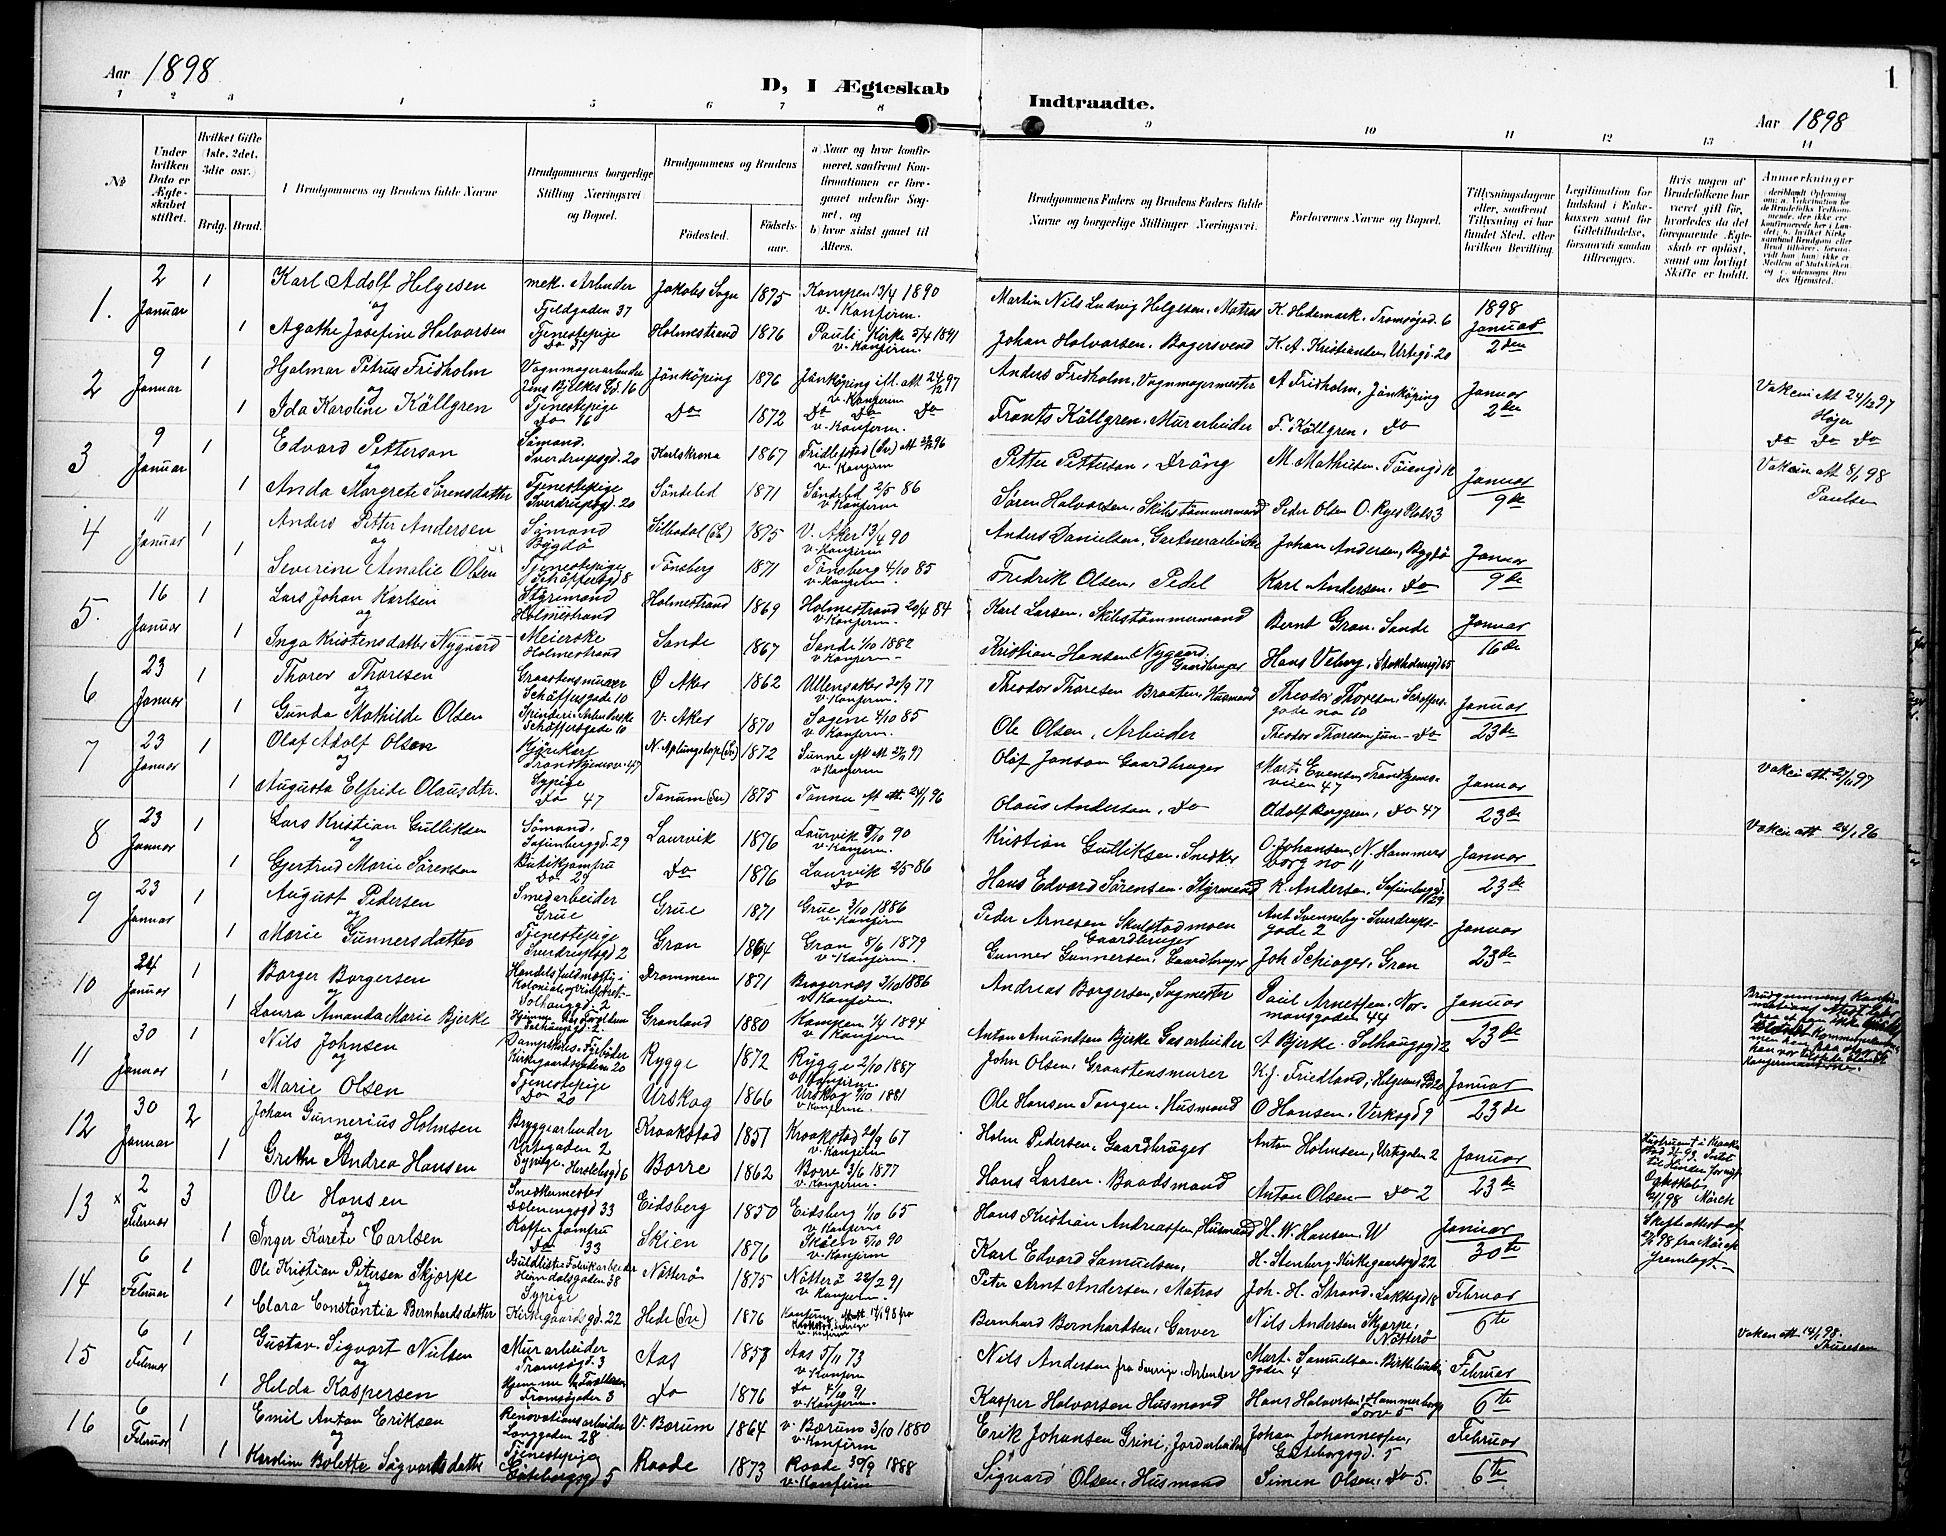 Aar 1898
D, I Ægteskab
Indtraadte.
Aar 1898
1
1 2 3 4 5 6 7 8 9 10 11 12 13 14
No
Under hvilken Dato er Ægteskabet stiftet.
Hvilket Gifte (1ste, 2det, 3die osv.)
Brdg. Brud.
Brudgommens og Brudens fulde Navne
Brudgommens borgerlige Stilling Næringsvei og Bopæl.
Brudgommens og Brudens
Fødested. Fødselsaar.
a) Naar og hvor konfirmeret, saafremt Konfirmationen er foregaaet udenfor Sognet, og
b) hvor sidst gaaet til Alters.
Brudgommens Faders og Brudens Faders fulde Navne og borgerlige Stillinger Næringsvei.
Forlovernes Navne og Bopæl.
Tillysningsdagene eller, saafremt Tillysning ei har fundet Sted, efter hvilken Bevilling.
Legitimation for Indskud i Enkekassen samt for Giftetilladelse, forsaavidt saadan tiltrænges.
Hvis nogen af Brudefolkene har været gift før, hvorledes da det foregaaende Ægteskab er opløst, samt om lovligt Skifte er holdt.
Anmerkninger
1. 2 Januar 1 Karl Adolf Helgesen mek. Arbeider Fjeldgaden 37 Jakobs Sogn 1875 Kampen 13/4 1890 v. Konfirm. Martin Nils Ludvig Helgesen. Matros K. Hedemark. Tromsøgd. 6 1898 Januar 2den
og
1 Agathe Josefine Halvorsen Tjenestepige Do 37 Holmestrand 1876 Pauli Kirke 5/4 1891 v. Konfirm. Johan Halvorsen. Bagersvend K. A. Kristiansen, Urtegd. 20
2 9 Januar 1 Hjalmar Petrus Fridholm Vognmagerarbeider Jens Bjelkes Gd. 16 Jönköping 1876 Jönköping ifl. att. 24/12 97 v. Konfirm Anders Fridholm, Vognmagermester A Fridholm, Jönköping Januar 2den Vakcin Att 24/12 97 Højer
og
1 Ida Karoline Källgren Tjenestepige Do 16 Do 1872 Do Do Do v. Konfirm. Frants Källgren. Murarbeider F. Källgren, Do Do Do Do
3 9 Januar 1 Edvard Petterson Sømand. Sverdrupsgd. 20 Karlskrona 1867 Fridlefstad (Sv) v. Konfirm Petter Petterson, Dräng M. Mathisen. Tøiengd Januar 9de Vakcin att 8/1 98 Paulsen
og
1 Anda Margrete Sørensdatter Tjenestepige Sverdrupsgd. 20 Søndeled 1871 Søndeled 2/5 86 v. Konfirm Søren Halvorsen. Skibstømmermand Peder Olsen O. Ryes Plads 3
4 11 Januar 1 Anders Petter Andersen Sømand Bygdø Silbodal (Sv) 1875 V. Aker 13/4 90 v. Konfirm Anders Danielsen, Gartnerarbeider Johan Andersen, Bygdø Januar 9de
og
1 Severine Amalie Olsen Tjenestepige Schäffersgd 8 Tønsberg 1871 Tønsberg 4/10 85 v. Konfirm. Fredrik Olsen, Pedel Karl Andersen. Do
5. 16 Januar 1 Lars Johan Karlsen Styrmand Holmestrand Holmestrand 1869 Holmestrand 20/4 84 v. Konfirm. Karl Larsen. Skibstømmermand Bernt Gran. Sande Januar 16de
og
1 Inga Kristensdatter Nygaard Meierske Holmestrand Sande 1867 Sande 1/10 1882 v. Konfirm. Kristian Hansen Nygaard. Gaardbruger Hans Viberg, Stockholmsgd 65
6 23 Januar 1 Thorer Thoresen Graastensmurer Schäffersgade 10 Ø Aker 1862 Ullensaker 30/9 77 v. Konfirm. Theodor Thoresen Braaten, Husmand Theodor Thoresen. Schæffersgade no 10 Januar 23de
og
1 Gunda Mathilde Olsen Spinderi-Arbeiderske Schäffersgade 10 V. Aker 1870 Sagene 4/10 85 v. Konfirm Ole Olsen, Arbeider Theodor Thoresen jun. Do
7 23 Januar 1 Olaf Adolf Olsen Kjørekarl Trondhjemsv. 47 1872 Sunne v. Konfirm Olof Janson Gaardbruger Mart. Evensen, Trondhjemsveien 47 Januar 23de Vakcin att.
og
1 Augusta Elfride Olausdtr. Sypige Do 47 Tanum (Sv) 1875 Tanum att. 24/1 96 v. Konfirm Olaus Andersen, Do Adolf Berggren, Do 47 Vakcin att 24/1 96
8 23 Januar 1 Lars Kristian Gulliksen Sømand, Sofienberggd. 29 Laurvik 1876 Laurvik 5/10 90 v. Konfirm. Kristian Gulliksen. Snedker O. Johansen, N. Hammersborg no 11 Januar 23de
og
1 Gjertrud Marie Sørensen Butikjomfru Do 29 Do 1876 Laurvik 2/5 86 Do Hans Edvard Sørensen. Styrmand K. Andersen, Sofienberggd. 29
9 23 Januar 1 August Pedersen Smedarbeider Grue Grue 1871 Grue 3/10 1886 v. Konfirm Peder Arnesen Skulstadmoen Gaardbruger Ant. Svenneby. Sverdrupsgade 2 Januar 23de
og
1 Marie Gunnersdatter Tjenestepige Sverdrupsgd 2 Gran 1864 Gran 8/6 1879 v. Konfirm. Gunner Gunnersen, Gaardbruger Joh Schiager, Gran
10 24 Januar 1 Borger Borgersen Solhaugsgd. 2 Drammen 1871 Bragernæs 3/10 1886 v. Konfirm. Andreas Borgersen, Sagmester Paul Arnessen, Normannsgaden 44 Januar 23de
og
1 Laura Amanda Marie Bjerke Hjemme hos Forældrene Solhaugsgd. 2 Grønland 1880 Kampen 1/4 1894 v. Konfirm Anton Amundsen Bjerke Gasarbeider A Bjerke. Solhaugsgd 2
11 30 Januar 1 Nils Johnsen Dampskibs-Fyrbøder Kirkegaardsgaden 20 Rygge 1872 Rygge 2/10 1887 v. Konfirm. John Olsen, Graastensmurer K. J. Friedland, Helgesens Gd 20 Januar 23de
og
1 Marie Olsen Tjenestepige Do 20 Urskog 1866 Urskog 9/10 1881 v. Konfirm. Ole Hansen Tangen. Husmand O Hansen. Verksgd 9
12 30 Januar 2 Johan Gunnerius Holmsen Bryggearbeider Urtegaden 2 Kraakstad 1851 Kraakstad 20/9 67 v. Konfirm Holm Pedersen. Gaardbruger Anton Holmsen, Urtegaden 2 Januar 23de
og
1 Grethe Andrea Hansen Sypige. Herslebsgd 6 Borre 1862 Borre 3/6 1877 v. Konfirm. Hans Larsen. Baadsmand Anton Olsen Do 2
13 x 2 Februar 3 Ole Hansen Snedkermester Dælenenggd 33 Eidsberg 1850 Eidsberg 1/10 65 v. Konfirm Hans Kristian Andreassen, Husmand H. W. Hansen. W Januar 30te
og
1 Inger Karete Carlsen Kasserjomfru Do 33 Skien 1876 Skien 5/10 90 v. Konfirm Karl Edvard Samuelsen, H. Stenberg. Kirkegaardsgd 22
14 6 Februar 1 Ole Kristian Petersen Skjærpe Guldlistefabrikarbeider Heimdalsgaden 38 Nøtterø 1875 Nøtterø 22/2 91 v. Konfirm. Peter Arnt Andersen. Matros Joh. H. Strand. Lakkegd 18 Februar 6te
1 Clara Constantia Bernhardsdatter Sypige Kirkegaardsgd. 22 Hede (Sv) 1876 v. Konfirm Bernhard Bernhardsen, Garver Nils Andersen Skjærpe, Nøtterø Vakcin att 14/1 98.
15 6 Februar 1 Gustav Sigvart Nielsen Murarbeider Tromsøgd. 3 Aas 1857 Aas 5/11 73 v. Konfirm Nils Andersen fra Sverige, Arbeider Mart. Samuelsen. Birkelundsgaden 4 Februar 6te
og
1 Helda Kaspersen Hjemme hos Forældrene Tromsøgaden 3 Do 1876 Do 4/10 91 v. Konfirm. Kasper Halvorsen Husmand Hans Halvorsen, Hammersborg Torv 5
16 6 Februar 1 Emil Anton Eriksen Renovationsarbeider Langgaden 28 V. Bærum 1864 v. Bærum 3/10 1880 v. Konfirm Erik Johansen Grini, Jordarbeider Johan Johannessen, Gøteborgsgd. 5 Februar 6te
og
1 Karoline Bolette Sigvartsdatter Tjenestepige Gøteborgsgd 5 Raade 1873 Raade 30/9 1888 v. Konfirm Sigvard Olsen, Husmand Simen Olsen, Do 5.